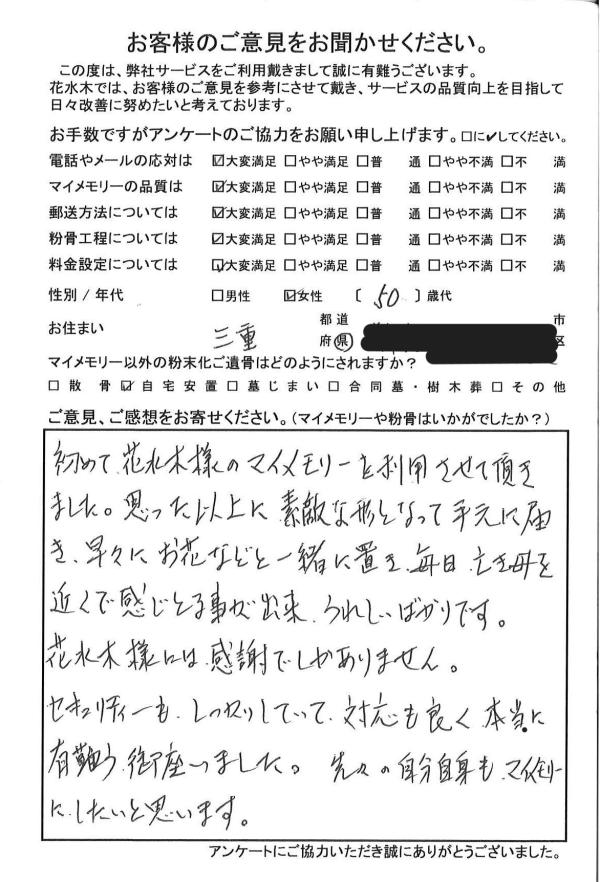 お客様のご意見をお聞かせください。
この度は、弊社サービスをご利用戴きまして誠に有難うございます。
花水木では、お客様のご意見を参考にさせて戴き、サービスの品質向上を目指して
日々改善に努めたいと考えております。
お手数ですがアンケートのご協力をお願い申し上げます。□に✓してください。
電話やメールの応対は ☑大変満足 □やや満足 □普 通 □やや不満 □不 満
マイメモリーの品質は ☑大変満足 □やや満足 □普 通 □やや不満 □不 満
郵送方法については ☑大変満足 □やや満足 □普 通 □やや不満 □不 満
粉骨工程については ☑大変満足 □やや満足 □普 通 □やや不満 □不 満
料金設定については ☑大変満足 □やや満足 □普 通 □やや不満 □不 満
性別 / 年代 □男性 ☑女性 〔 50 〕歳代
お住まい 三重 都道府県 市区
マイメモリー以外の粉末化ご遺骨はどのようにされますか?
□散 骨 ☑自宅安置 □墓じまい □合同墓・樹木葬 □その他
ご意見、ご感想をお寄せください。(マイメモリーや粉骨はいかがでしたか?)
初めて、花水木様のマイメモリーを利用させて頂き
ました。思った以上に素敵な形となって手元に届
き、早々にお花などと一緒に置き、毎日、亡き母を
近くで感じとる事が出来、うれしいばかりです。
花水木様には、感謝でしかありません。
セキュリティーも、しっかりしていて、対応も良く、本当に
有難う御座いました。 先々の自分自身も、マイメモリー
に、したいと思います。
アンケートにご協力いただき誠にありがとうございました。